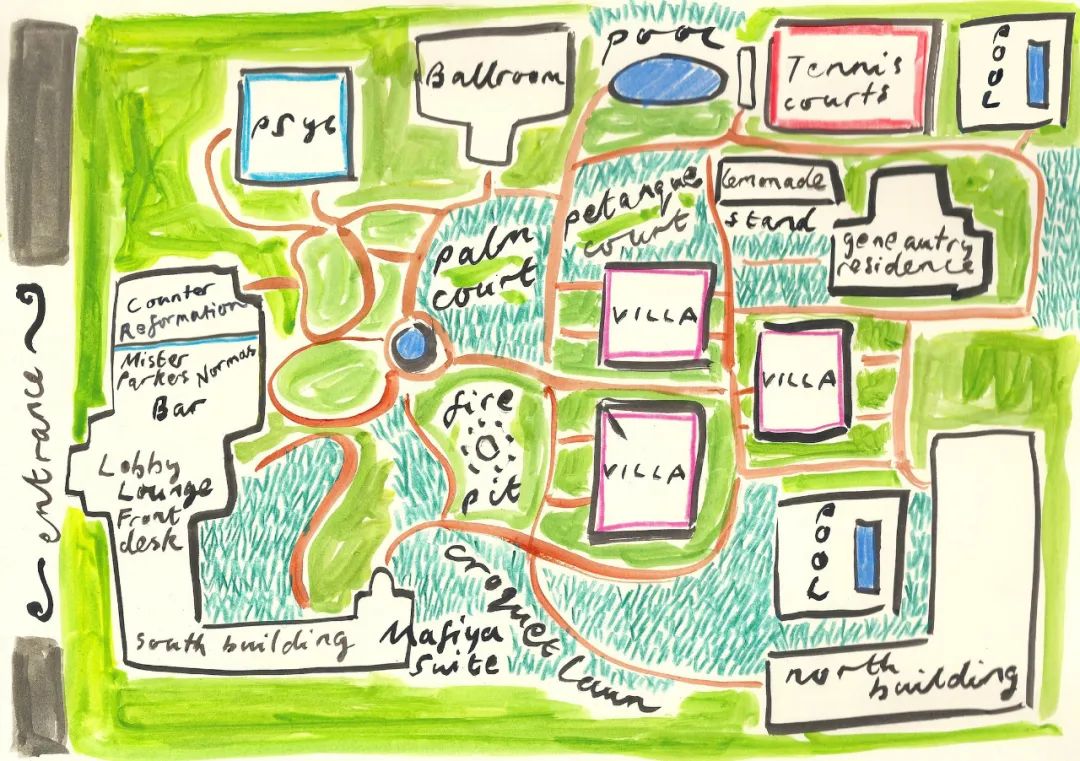 pool
Ballroom
Tennis
courts
POOL
PSYC
Lemonade
stand
petanque
court
gene autry
residence
palm
court
Counter
Reformation
Mister
Parkers Normas
Bar
entrance
VILLA
VILLA
VILLA
fire
pit
Lobby
Lounge
Front
desk
POOL
croquet lawn
south building
Suite
north
building